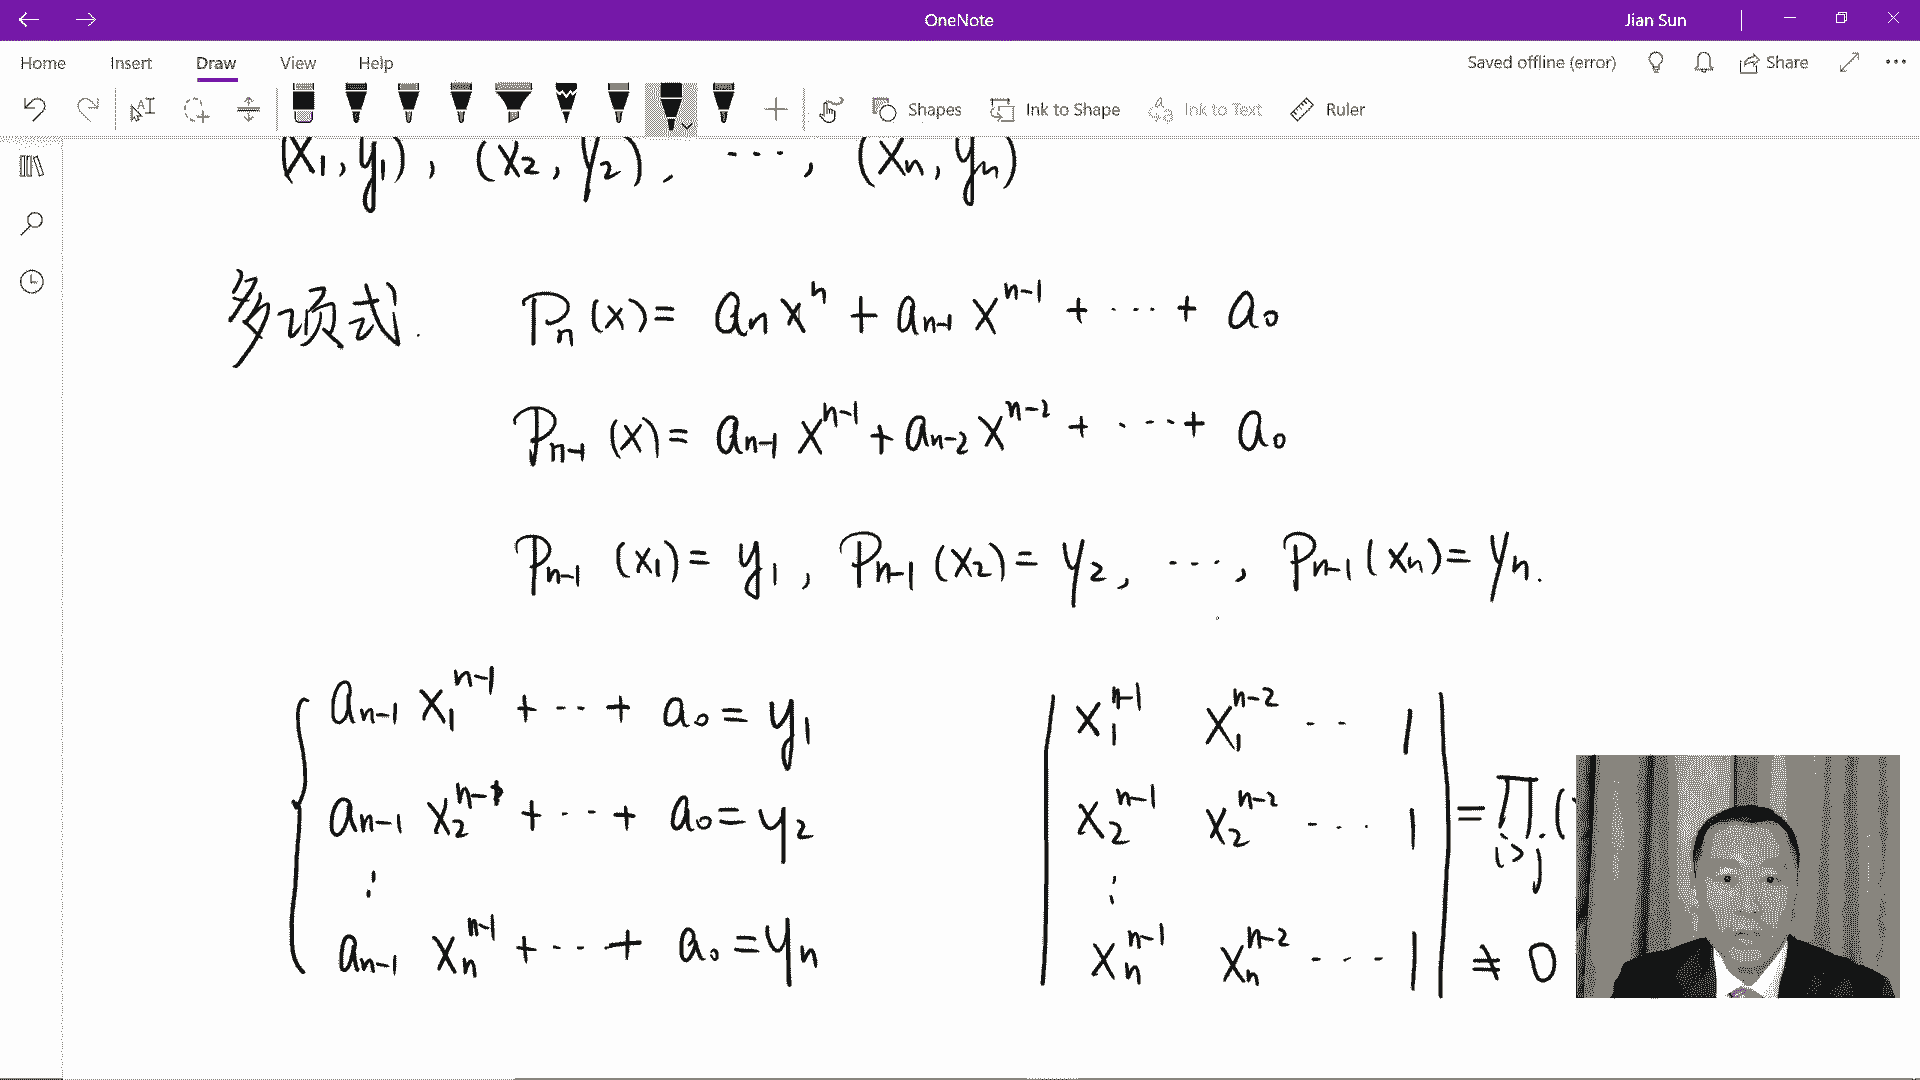 OneNote
Jian Sun
Home Insert Draw View Help
Saved offline (error) Share
Shapes Ink to Shape Ink to Text Ruler
(x₁, y₁), (x₂, y₂), ⋯, (xₙ, yₙ)
多项式. Pₙ(x) = aₙxⁿ + aₙ₋₁xⁿ⁻¹ + ⋯ + a₀
Pₙ₋₁(x) = aₙ₋₁xⁿ⁻¹ + aₙ₋₂xⁿ⁻² + ⋯ + a₀
Pₙ₋₁(x₁) = y₁, Pₙ₋₁(x₂) = y₂, ⋯, Pₙ₋₁(xₙ) = yₙ.
aₙ₋₁x₁ⁿ⁻¹ + ⋯ + a₀ = y₁
aₙ₋₁x₂ⁿ⁻¹ + ⋯ + a₀ = y₂
⋮
aₙ₋₁xₙⁿ⁻¹ + ⋯ + a₀ = yₙ
| x₁ⁿ⁻¹ x₁ⁿ⁻² ⋯ 1 |
| x₂ⁿ⁻¹ x₂ⁿ⁻² ⋯ 1 | = ∏ i>j (
⋮
| xₙⁿ⁻¹ xₙⁿ⁻² ⋯ 1 | ≠ 0